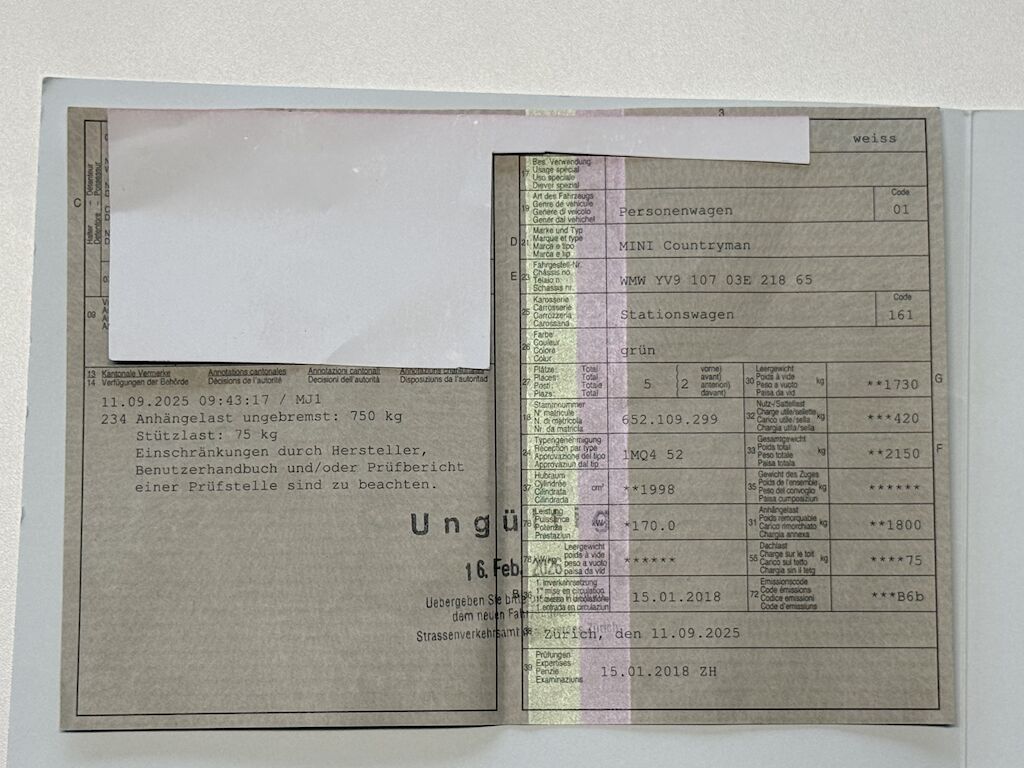 3
C
Halter
Détenteur
09
13 Kantonale Vermerke
14 Verfügungen der Behörde
Annotations cantonales
Décisions de l'autorité
Annotazioni cantonali
Decisioni dell'autorità
Disposiziuns da l'autoritad
11.09.2025 09:43:17 / MJ1
234 Anhängelast ungebremst: 750 kg
Stützlast: 75 kg
Einschränkungen durch Hersteller,
Benutzerhandbuch und/oder Prüfbericht
einer Prüfstelle sind zu beachten.
Ungü
16. Feb. 2026
Uebergeben Sie
dem neuen
Strassenverkehrsamt
weiss
17 Bes. Verwendung
Usage spécial
Uso speciale
Diever spezial
19 Art des Fahrzeugs
Genre de véhicule
Genere di veicolo
Gener dal vehichel
Personenwagen
Code
01
D 21 Marke und Typ
Marque et type
Marca e tipo
Marca e tip
MINI Countryman
E 23 Fahrgestell-Nr.
Châssis no.
Telaio n.
Schassis nr.
WMW YV9 107 03E 218 65
25 Karosserie
Carrosserie
Carrozzeria
Carossaria
Stationswagen
Code
161
26 Farbe
Couleur
Colore
Colur
grün
27 Plätze: Total
Places: Total
Posti: Totale
Plazs: Total
5 ( 2
vorne)
avant)
anteriori)
davant)
30 Leergewicht
Poids à vide
Peso a vuoto
Paisa da vid
kg
**1730
G
18 Stammnummer
N° matricule
N. di matricola
Nr. da matricla
652.109.299
32 Nutz-/Sattellast
Charge utile/sellette
Carico utile/sella
Chargia utila/sella
kg
***420
24 Typengenehmigung
Réception par type
Approvazione del tipo
Approvaziun dal tip
1MQ4 52
33 Gesamtgewicht
Poids total
Peso totale
Paisa totala
kg
**2150
F
37 Hubraum
Cylindrée
Cilindrata
Cilindrada
cm³
**1998
35 Gewicht des Zuges
Poids de l'ensemble
Peso del convoglio
Paisa cumposiziun
kg
******
76 Leistung
Puissance
Potenza
Prestaziun
kW
*170.0
31 Anhängelast
Poids remorquable
Carico rimorchiato
Chargia annexa
kg
**1800
78 kW/kg
Leergewicht
poids à vide
peso a vuoto
paisa da vid
******
55 Dachlast
Charge sur le toit
Carico sul tetto
Chargia sin il tetg
kg
****75
B 36 1. Inverkehrsetzung
1re mise en circulation
1. messa in circolazione
1. entrada en circulaziun
15.01.2018
72 Emissionscode
Code émissions
Codice emissioni
Code d'emissiuns
***B6b
38 Zürich, den 11.09.2025
39 Prüfungen
Expertises
Perizie
Examinaziuns
15.01.2018 ZH